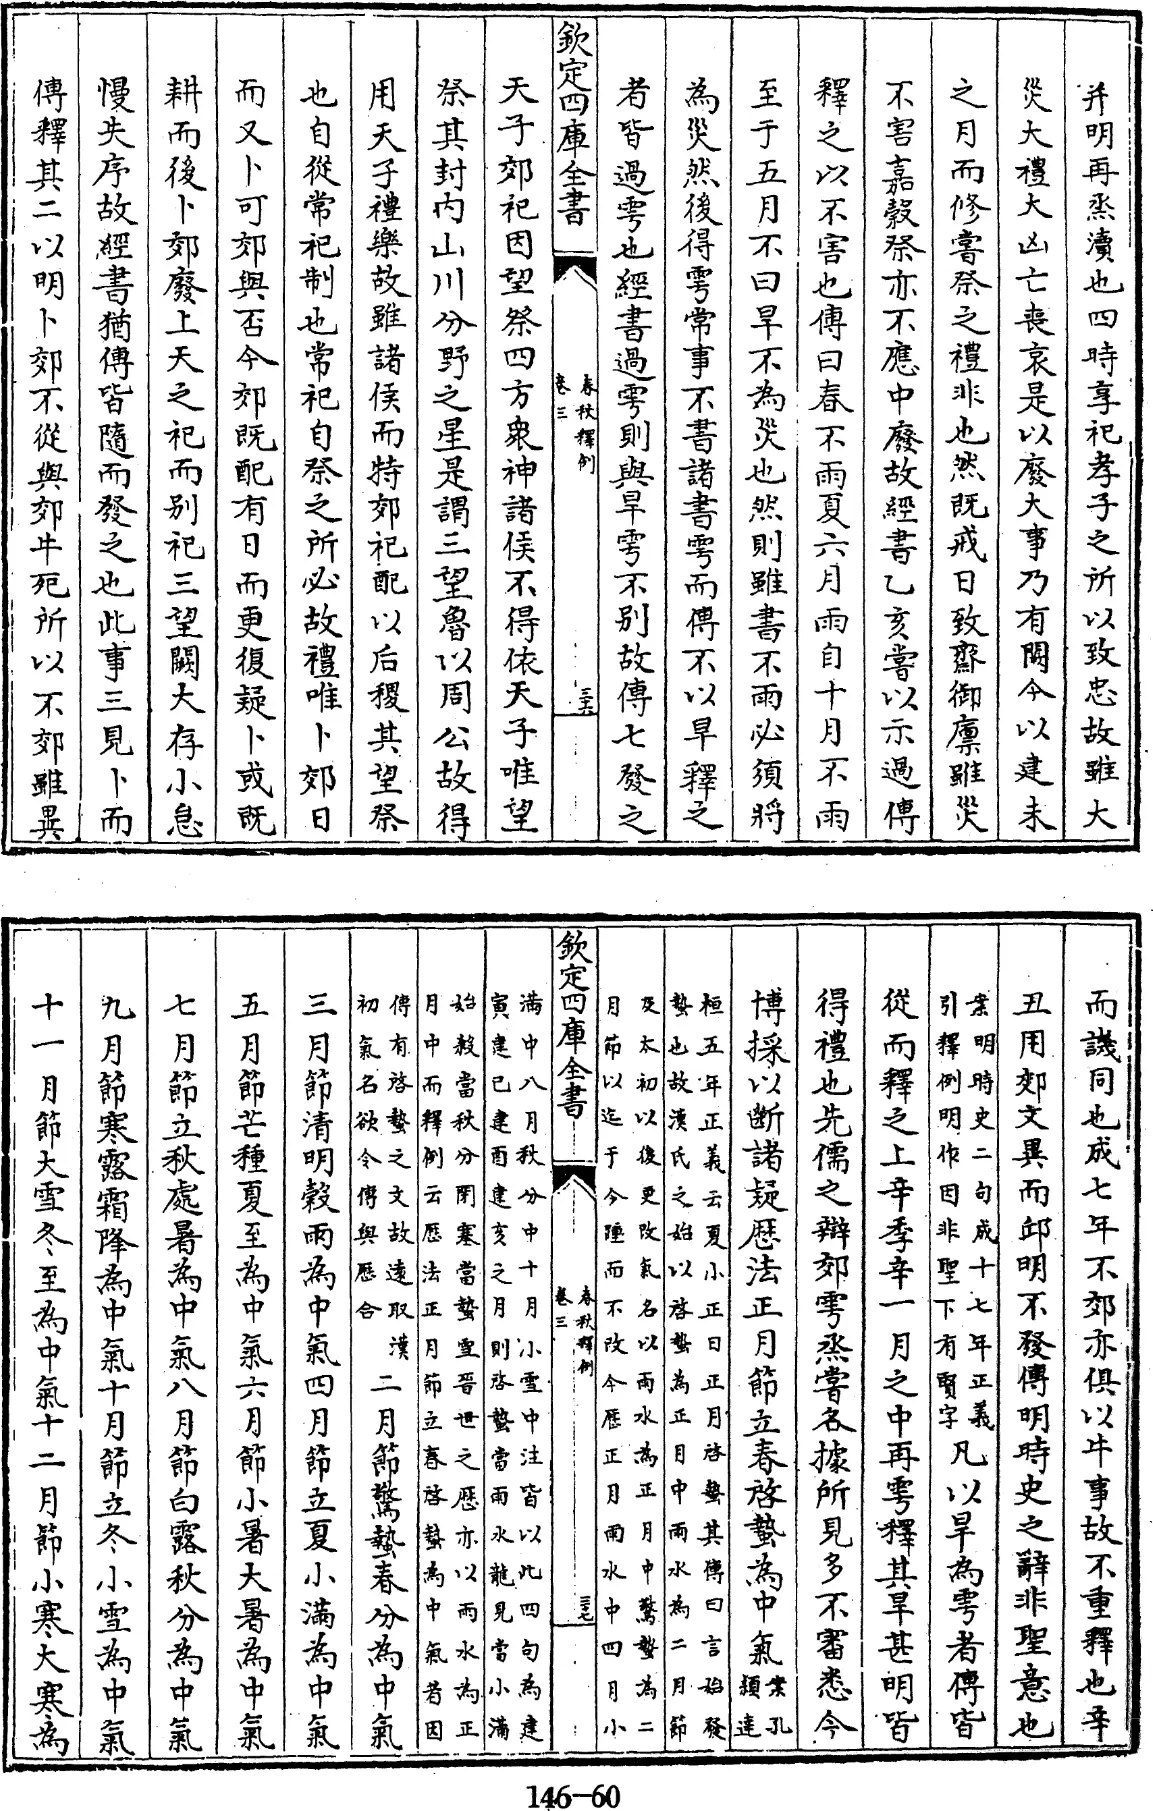 并明再烝瀆也四時享祀孝子之所以致忠故雖大
災大禮大凶亡喪哀是以廢大事乃有闕今以建未
之月而修嘗祭之禮非也然既戒日致齋御廩雖災
不害嘉穀祭亦不應中廢故經書乙亥嘗以示過傳
釋之以不害也傳曰春不雨夏六月雨自十月不雨
至于五月不曰旱不為災也然則雖書不雨必須將
為災然後得雩常事不書諸書雩而傳不以旱釋之
者皆過雩也經書過雩則與旱雩不別故傳七發之
欽定四庫全書
春秋釋例
卷三
三六
天子郊祀因望祭四方衆神諸侯不得依天子唯望
祭其封內山川分野之星是謂三望魯以周公故得
用天子禮樂故雖諸侯而特郊祀配以后稷其望祭
也自從常祀制也常祀自祭之所必故禮唯卜郊日
而又卜可郊與否今郊既配有日而更復疑卜或既
耕而後卜郊廢上天之祀而別祀三望闕大存小怠
慢失序故經書猶傳皆隨而發之也此事三見卜而
傳釋其二以明卜郊不從與郊牛死所以不郊雖異
而譏同也成七年不郊亦俱以牛事故不重釋也辛
丑用郊文異而邱明不發傳明時史之辭非聖意也
案明時史二句成十七年正義
引釋例明作因非聖下有賢字
凡以旱為雩者傳皆
從而釋之上辛季辛一月之中再雩釋其旱甚明皆
得禮也先儒之辯郊雩烝嘗名據所見多不審悉今
博採以斷諸疑厯法正月節立春啓蟄為中氣
案孔
穎達
桓五年正義云夏小正曰正月啓蟄其傳曰言始發
蟄也故漢氏之始以啓蟄為正月中雨水為二月節
及太初以後更改氣名以雨水為正月中驚蟄為二
月節以迄于今踵而不改今厯正月雨水中四月小
欽定四庫全書
春秋釋例
卷三
三七
滿中八月秋分中十月小雪中注皆以此四句為建
寅建已建酉建亥之月則啓蟄當雨水龍見當小滿
始殺當秋分閉塞當蟄雪晉世之厯亦以雨水為正
月中而釋例云厯法正月節立春啓蟄為中氣者因
傳有啓蟄之文故遠取漢
初氣名欲令傳與厯合
二月節驚蟄春分為中氣
三月節清明榖雨為中氣四月節立夏小滿為中氣
五月節芒種夏至為中氣六月節小暑大暑為中氣
七月節立秋處暑為中氣八月節白露秋分為中氣
九月節寒露霜降為中氣十月節立冬小雪為中氣
十一月節大雪冬至為中氣十二月節小寒大寒為
146-60